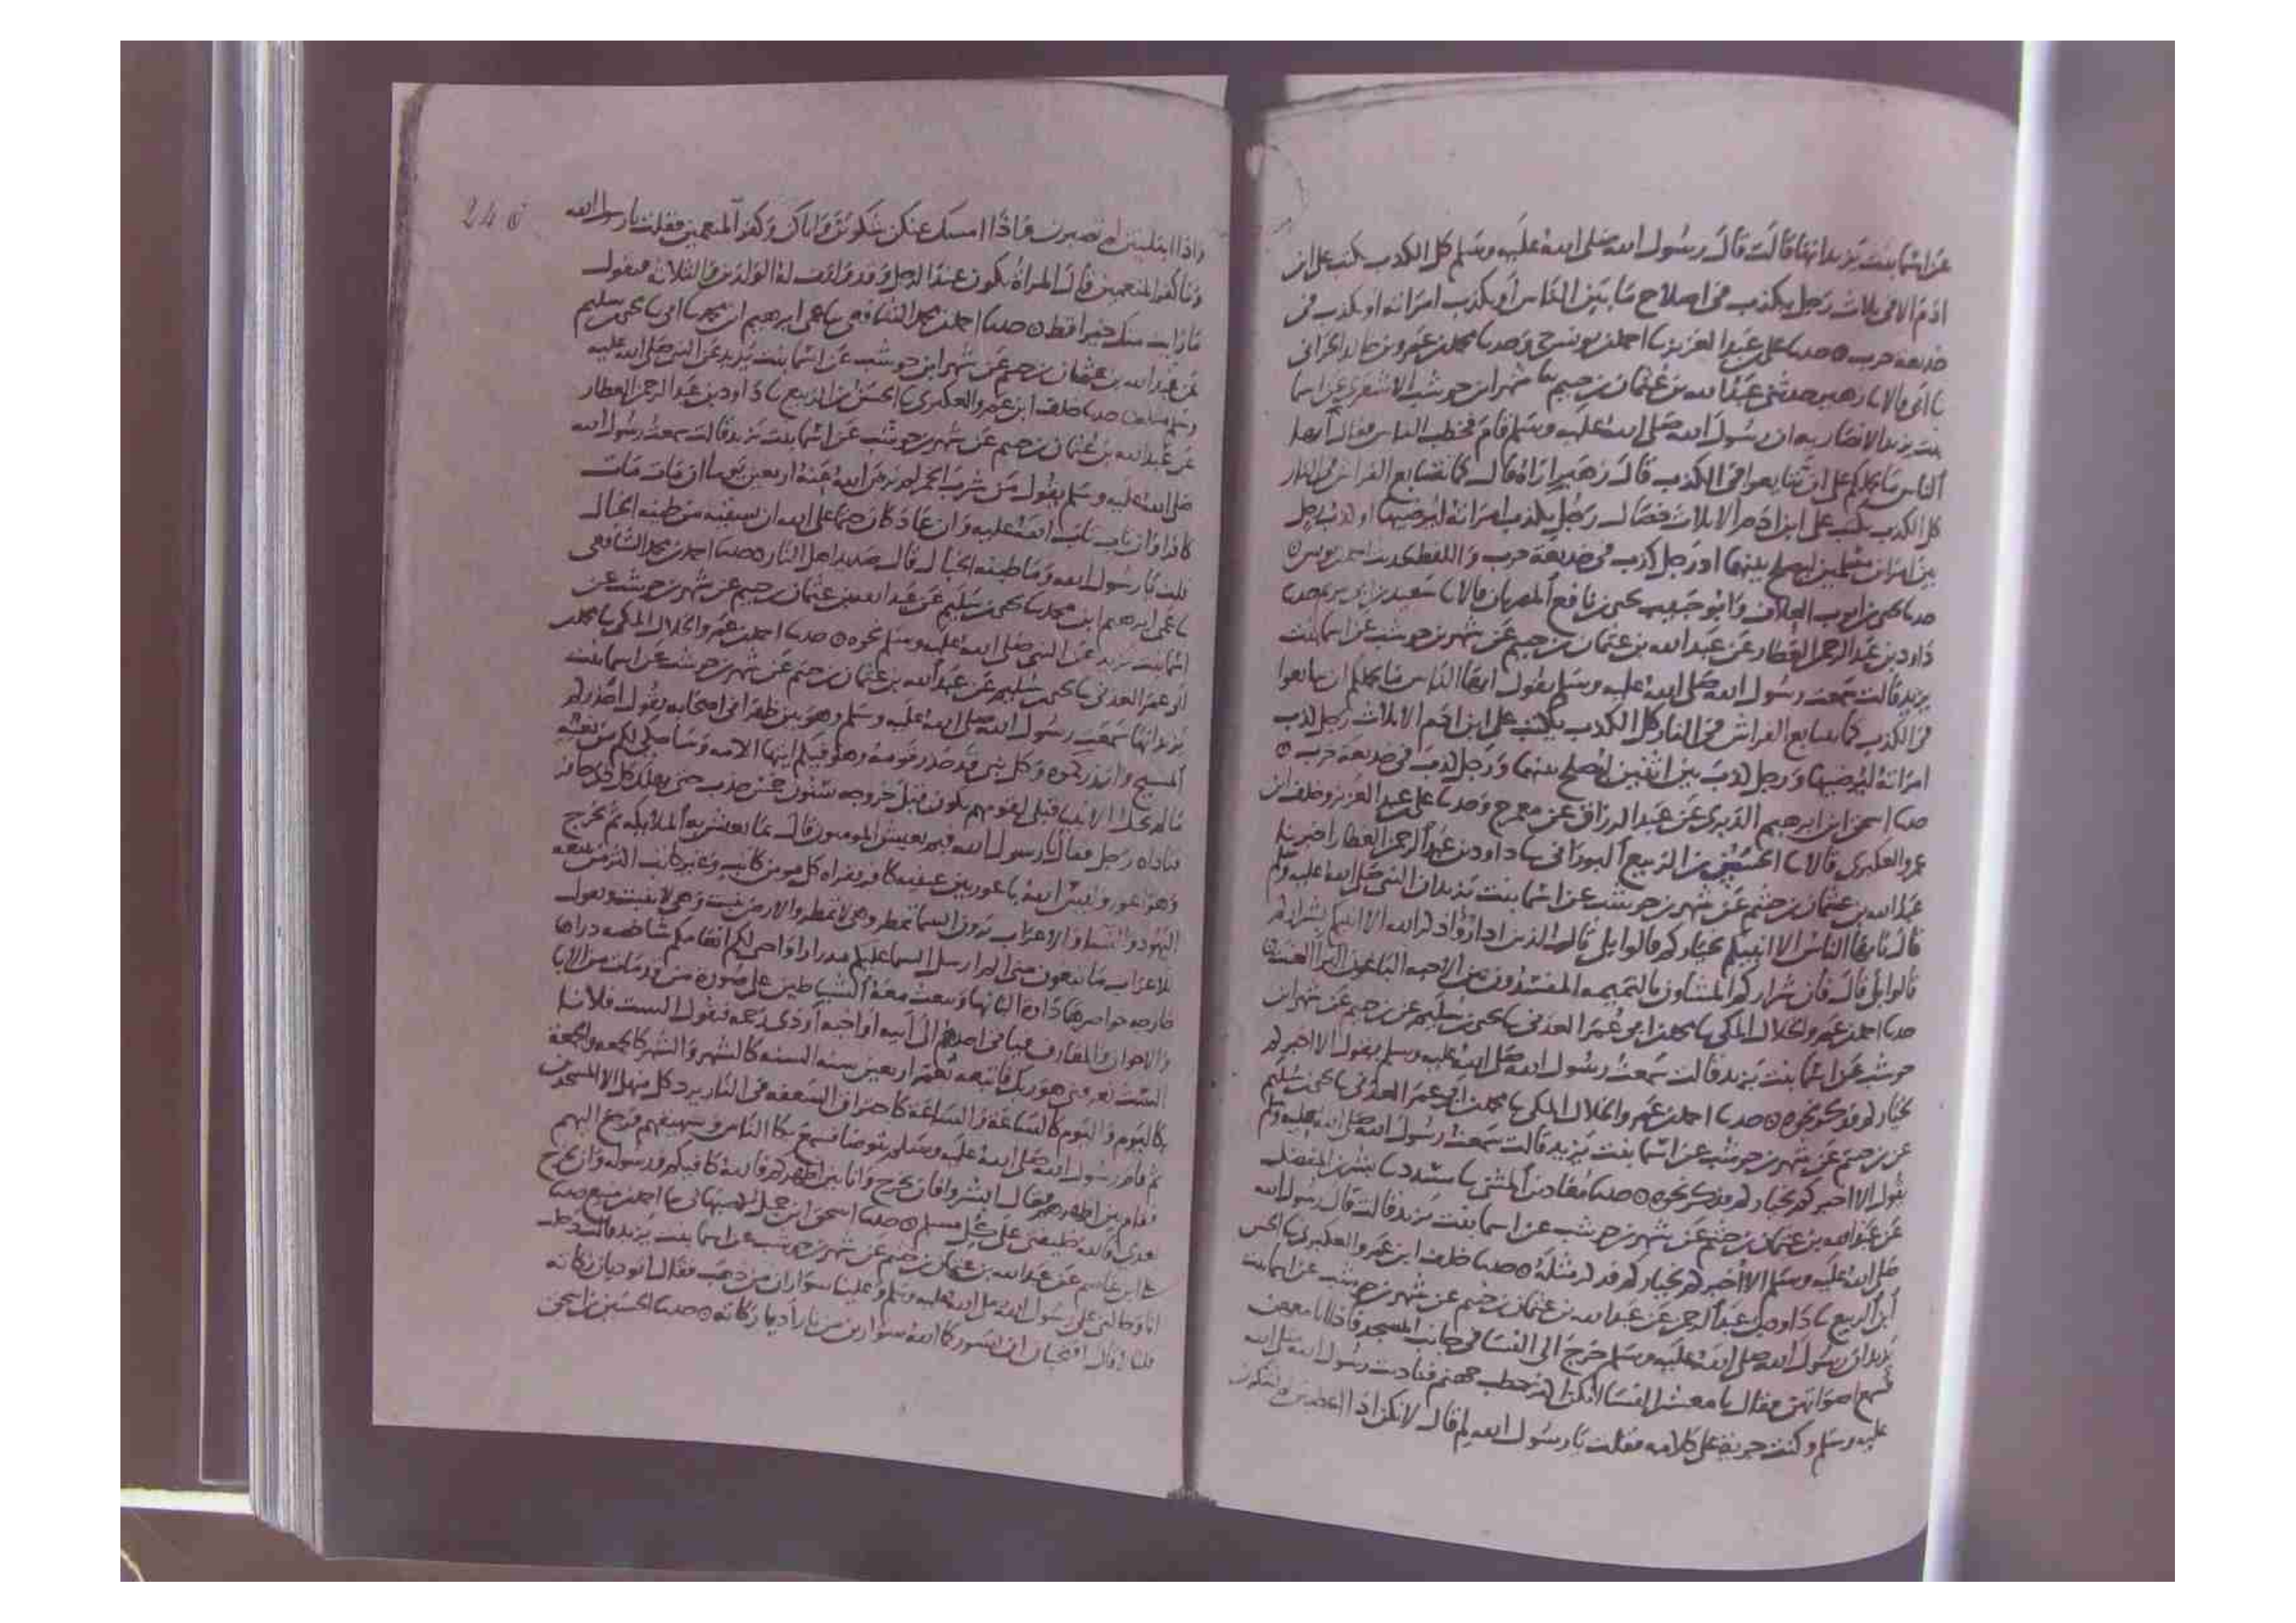 عن اسما بنت يزيد انها قالت قال رسول الله صلى الله عليه وسلم كل الكذب يكتب على ابن
ادم الا في ثلاث رجل يكذب في اصلاح ما بين الناس او يكذب امراته او يكذب في
خديعة حرب حدثنا علي بن عبد العزيز نا احمد بن يونس ح وحدثنا محمد بن عمرو بن خالد الحراني
نا ابي قالا نا زهير حدثني عبد الله بن عثمان بن خثيم نا شهر ابن حوشب الاشعري عن اسما
بنت يزيد الانصاريه ان رسول الله صلى الله عليه وسلم قام فخطب الناس فقال ايها
الناس ما يحملكم على ان تتايعوا في الكذب قال زهير اراه قال كما تتتايع الفراش في النار
كل الكذب يكتب على ابن ادم الا ثلاث خصال رجل يكذب امراته ليرضيها او رجل
بين امراين مسلمين ليصلح بينهما او رجل كذب في خديعة حرب واللفظ لحديث احمد بن يونس
حدثنا يحيى بن ايوب العلاف وابو حبيب يحيى بن نافع المصريان قالا نا سعيد بن ابي مريم
داود بن عبد الرحمن العطار عن عبد الله بن عثمان بن خثيم عن شهر بن حوشب عن اسما بنت
يزيد قالت سمعت رسول الله صلى الله عليه وسلم يقول ايها الناس ما يحملكم ان تتايعوا
في الكذب كما يتتايع الفراش في النار كل الكذب يكتب على ابن ادم الا ثلاث رجل كذب
امراته ليرضيها ورجل كذب بين اثنين ليصلح بينهما ورجل كذب في خديعة حرب
حدثنا اسحق ابن ابراهيم الدبري عن عبد الرزاق عن معمر ح وحدثنا علي بن عبد العزيز وخلف ابن
عمرو العكبري قالا نا الحسن بن الربيع البوراني نا داود بن عبد الرحمن العطار
عبد الله بن عثمان بن خثيم عن شهر بن حوشب عن اسما بنت يزيد ان النبي صلى الله عليه وسلم
قال يا ايها الناس الا انبيكم بخياركم قالوا بلى قال الذين اذا رؤا ذكر الله الا انبيكم بشراركم
قالوا بلى قال فان شراركم المشاون بالنميمه المفسدون بين الاحبه الباغون البرا العنت
حدثنا احمد بن عمرو الخلال المكي نا محمد بن ابي عمر العدني نا يحيى بن سليم عن بن خثيم عن شهر ابن
حوشب عن اسما بنت يزيد قالت سمعت رسول الله صلى الله عليه وسلم يقول الا اخبركم
بخياركم فذكر نحوه حدثنا احمد بن عمرو الخلال المكي نا محمد بن ابي عمر العدني نا يحيى بن سليم
عن بن خثيم عن شهر بن حوشب عن اسما بنت يزيد قالت سمعت رسول الله صلى الله عليه وسلم
يقول الا اخبركم بخياركم فذكر نحوه حدثنا معاذ بن المثنى نا مسدد نا بشر بن المفضل
عن عبد الله بن عثمان بن خثيم عن شهر بن حوشب عن اسما بنت يزيد قالت قال رسول الله
صلى الله عليه وسلم الا اخبركم بخياركم فذكر مثله حدثنا خلف ابن عمرو العكبري نا الحسن
ابن الربيع نا داود بن عبد الرحمن عن عبد الله بن عثمان بن خثيم عن شهر بن حوشب عن اسما بنت
يزيد ان رسول الله صلى الله عليه وسلم خرج الى النسا في جانب المسجد فاذا انا معهن
فسمع اصواتهن فقال يا معشر النسا انكن اكثر حطب جهنم فناديت رسول الله صلى الله
عليه وسلم وكنت جرية على كلامه فقلت يا رسول الله لم قال لانكن اذا اعطيتن لم تشكرن
واذا ابتليتن لم تصبرن فاذا امسك عنكن شكوتن واياكن وكفر المنعمين فقلت يا رسول الله
وما كفر المنعمين قال المراة تكون عند الرجل وقد ولدت له الولدين والثلاثه فتقول
ما رايت منك خيرا قط حدثنا احمد بن محمد الشافعي نا عمي ابرهيم ابن محمد نا يحيى بن سليم
عن عبد الله بن عثمان بن خثيم عن شهر ابن حوشب عن اسما بنت يزيد عن النبي صلى الله عليه
وسلم مثله حدثنا خلف ابن عمرو العكبري نا الحسن بن الربيع نا داود بن عبد الرحمن العطار
عن عبد الله بن عثمان بن خثيم عن شهر بن حوشب عن اسما بنت يزيد قالت سمعت رسول الله
صلى الله عليه وسلم يقول من شرب الخمر لم يرض الله عنه اربعين يوما ان مات مات
كافرا وان تاب تاب الله عليه وان عاد كان حقا على الله ان يسقيه من طينه الخبال
قلت يا رسول الله وما طينه الخبال قال صديد اهل النار حدثنا احمد بن محمد الشافعي
نا عمي ابرهيم ابن محمد نا يحيى بن سليم عن عبد الله بن عثمان بن خثيم عن شهر بن حوشب عن
اسما بنت يزيد عن النبي صلى الله عليه وسلم نحوه حدثنا احمد بن عمرو الخلال المكي نا محمد بن
ابي عمر العدني نا يحيى بن سليم عن عبد الله بن عثمان بن خثيم عن شهر بن حوشب عن اسما بنت
يزيد انها سمعت رسول الله صلى الله عليه وسلم وهو بين ظهراني اصحابه يقول احذركم
المسيح وانذركموه وكل نبي قد حذر قومه وهو فيكم ايتها الامه وساحلي لكم من نعته
ما لم يحل الانبيا قبلي لقومهم يكون قبل خروجه سنون خمس جدب حتى يهلك كل ذي حافر
فناداه رجل فقال يا رسول الله فبم يعيش المومنون قال بما تعيش به الملايكه ثم يخرج
وهو اعور وليس الله باعور بين عينيه كافر يقراه كل مومن كاتب وغير كاتب اكثر من يتبعه
اليهود والنسا والاعراب يرون السما تمطر وهي لا تمطر والارض تنبت وهي لا تنبت ويقول
للاعراب ما تبغون مني الم ارسل السما عليكم مدرارا واحيي لكم انعامكم شاخصه دراها
خارجه خواصرها داره البانها ويبعث معه الشياطين على صورة من قد مات من الابا
والاخوان والمعارف فياتي احدهم الى ابيه او اخيه او ذي رحمه فيقول الست فلانا
الست تعرفني هو ربك فاتبعه يعمر اربعين سنه السنه كالشهر والشهر كالجمعه والجمعة
كاليوم واليوم كالساعة والساعة كاحتراق السعفه في النار يرد كل منهل الا المسجدين
ثم قام رسول الله صلى الله عليه وسلم يتوضا فسمع بكا الناس وشهيقهم فرجع اليهم
فقام بين اظهرهم فقال ابشروا فان يخرج وانا بين اظهركم فالله كافيكم ورسوله وان يخرج
بعدي فالله خليفتي على كل مسلم حدثنا اسحق ابن جميل الاصبهاني نا احمد بن منيع
علي ابن عاصم عن عبد الله بن عثمان بن خثيم عن شهر بن حوشب عن اسما بنت يزيد قالت دخلت
انا وخالتي على رسول الله صلى الله عليه وسلم وعلينا سواران من ذهب فقال اتوديان زكاته
قلنا لا قال اتحبان ان يسوركما الله سوارين من نار اديا زكاته حدثنا الحسين بن اسحق